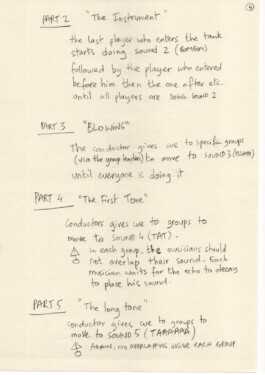 4
PART 2 "The Instrument"
the last player who enters the tank
starts doing sound 2
followed by the player who entered
before him then the one after etc.
until all players are doing sound 2
PART 3 "BLOWING"
The conductor gives cue to specific groups
(via the group leader) to move to SOUND 3
until everyone is doing it
PART 4 "The First Tone"
Conductors gives cue to groups to
move to SOUND 4 (TAT).
in each group, the musicians should
not overlap their sound. Each
musician waits for the echo to decay
to place his sound.
PART 5 "The long tone"
conductor gives cue to groups to
move to SOUND 5 (TAAAAAA)
AGAIN, NO OVERLAPPING INSIDE EACH GROUP